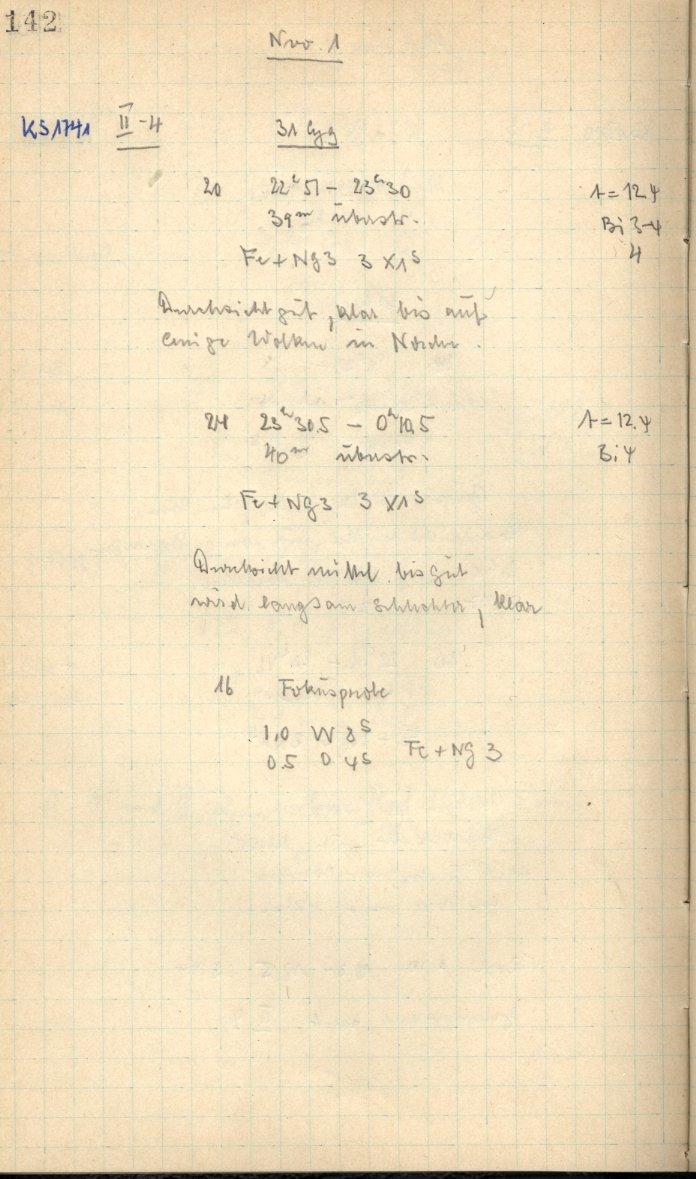 142
Nov. 1
KS1741 II-4 31 Cyg
20 22h51 - 23h30 t=12.4
39m überstr. Bi 3-4
Fe+Ng3 3 x 1s 4
Durchsicht gut, klar bis auf
einige Wolken in Norden.
24 23h30.5 - 0h10.5 t=12.4
40m überstr. Bi 4
Fe+Ng3 3 x 1s
Durchsicht mittel bis gut
wird langsam schlechter, klar
16 Fokusprobe
1.0 W 8s
0.5 O 4s Fe+Ng 3